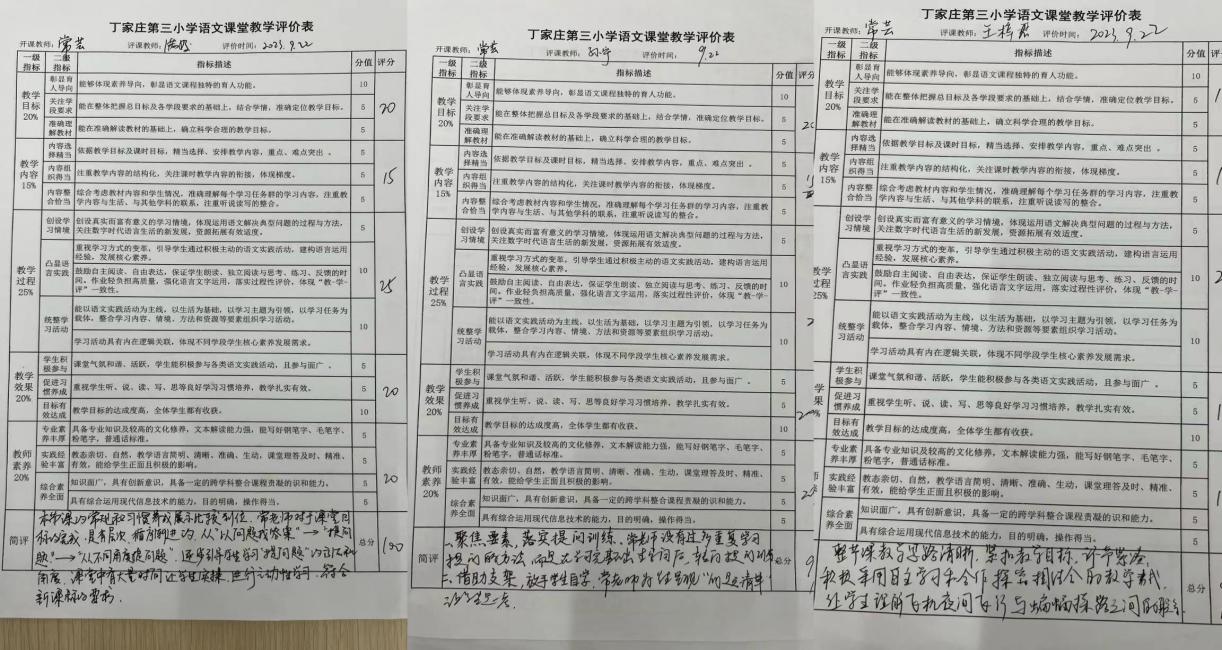 丁家庄第三小学语文课堂教学评价表
开课教师：常芸 评课教师： 评价时间：2023.9.22
一级指标 二级指标 指标描述 分值 评分
教学目标20%
彰显育人导向 能够体现素养导向，彰显语文课程独特的育人功能。 10
关注学段要求 能在整体把握总目标及各学段要求的基础上，结合学情，准确定位教学目标。 5 20
准确理解教材 能在准确解读教材的基础上，确立科学合理的教学目标。 5
教学内容15%
内容选择精当 依据教学目标及课时目标，精当选择、安排教学内容，重点、难点突出 。 5
内容组织得当 注重教学内容的结构化，关注课时教学内容的衔接，体现梯度。 5 15
内容整合恰当 综合考虑教材内容和学生情况，准确理解每个学习任务群的学习内容，注重教
学内容与生活、与其他学科的联系，注重听说读写的整合。 5
教学过程25%
创设学习情境 创设真实而富有意义的学习情境，体现运用语文解决典型问题的过程与方法，
关注数字时代语言生活的新发展，资源拓展有效适度。 5
凸显语言实践 重视学习方式的变革，引导学生通过积极主动的语文实践活动，建构语言运用
经验，发展核心素养。
鼓励自主阅读、自由表达，保证学生朗读、独立阅读与思考、练习、反馈的时
间。作业轻负担高质量，强化语言文字运用，落实过程性评价，体现“教-学-
评”一致性。 10 25
统整学习活动 能以语文实践活动为主线，以生活为基础，以学习主题为引领，以学习任务为
载体，整合学习内容、情境、方法和资源等要素组织学习活动。
学习活动具有内在逻辑关联，体现不同学段学生核心素养发展需求。 10
教学效果20%
学生积极参与 课堂气氛和谐、活跃，学生能积极参与各类语文实践活动，且参与面广 。 5
促进习惯养成 重视学生听、说、读、写、思等良好学习习惯培养，教学扎实有效。 5 20
目标有效达成 教学目标的达成度高，全体学生都有收获。 10
教师素养20%
专业素养丰厚 具备专业知识及较高的文化修养，文本解读能力强，能写好钢笔字、毛笔字、
粉笔字，普通话标准。 5
实践经验丰富 教态亲切、自然，教学语言简明、清晰、准确、生动，课堂理答及时、精准、
有效，能给学生正面且积极的影响。 5
综合素养全面 知识面广，具有创新意识，具备一定的跨学科整合课程资凝的识和能力。 5 20
具有综合运用现代信息技术的能力，目的明确，操作得当。 5
简评 本节课的常规和习惯养成展示比较到位，常老师对于课堂目
标的完成，具有层次，循序渐进的，从“以问题找答案”→“提问
题”→“从不同角度提问题”，逐步引导学生学习“提问题”的方法和
角度，课堂中有大量时间让学生实操，进行主动性学习，符合
新课标的要求。
总分 100
丁家庄第三小学语文课堂教学评价表
开课教师：常芸 评课教师：孙宁 评价时间： 9.22
一级指标 二级指标 指标描述 分值 评分
教学目标20%
彰显育人导向 能够体现素养导向，彰显语文课程独特的育人功能。 10
关注学段要求 能在整体把握总目标及各学段要求的基础上，结合学情，准确定位教学目标。 5
准确理解教材 能在准确解读教材的基础上，确立科学合理的教学目标。 5
教学内容15%
内容选择精当 依据教学目标及课时目标，精当选择、安排教学内容，重点、难点突出 。 5
内容组织得当 注重教学内容的结构化，关注课时教学内容的衔接，体现梯度。 5
内容整合恰当 综合考虑教材内容和学生情况，准确理解每个学习任务群的学习内容，注重教
学内容与生活、与其他学科的联系，注重听说读写的整合。 5
教学过程25%
创设学习情境 创设真实而富有意义的学习情境，体现运用语文解决典型问题的过程与方法，
关注数字时代语言生活的新发展，资源拓展有效适度。 5
凸显语言实践 重视学习方式的变革，引导学生通过积极主动的语文实践活动，建构语言运用
经验，发展核心素养。
鼓励自主阅读、自由表达，保证学生朗读、独立阅读与思考、练习、反馈的时
间。作业轻负担高质量，强化语言文字运用，落实过程性评价，体现“教-学-
评”一致性。 10
统整学习活动 能以语文实践活动为主线，以生活为基础，以学习主题为引领，以学习任务为
载体，整合学习内容、情境、方法和资源等要素组织学习活动。
学习活动具有内在逻辑关联，体现不同学段学生核心素养发展需求。 10
教学效果20%
学生积极参与 课堂气氛和谐、活跃，学生能积极参与各类语文实践活动，且参与面广 。 5
促进习惯养成 重视学生听、说、读、写、思等良好学习习惯培养，教学扎实有效。 5
目标有效达成 教学目标的达成度高，全体学生都有收获。 10
教师素养20%
专业素养丰厚 具备专业知识及较高的文化修养，文本解读能力强，能写好钢笔字、毛笔字、
粉笔字，普通话标准。 5
实践经验丰富 教态亲切、自然，教学语言简明、清晰、准确、生动，课堂理答及时、精准、
有效，能给学生正面且积极的影响。 5
综合素养全面 知识面广，具有创新意识，具备一定的跨学科整合课程资凝的识和能力。 5
具有综合运用现代信息技术的能力，目的明确，操作得当。 5
简评 一、聚焦要素，落实提问训练。常老师没有过多重复学习
提问的方法，而是在
二、借助支架，放手学生自学。常老师 “问题清单”
总分
丁家庄第三小学语文课堂教学评价表
开课教师：常芸 评课教师：王梓君 评价时间：2023.9.22
一级指标 二级指标 指标描述 分值 评分
教学目标20%
彰显育人导向 能够体现素养导向，彰显语文课程独特的育人功能。 10
关注学段要求 能在整体把握总目标及各学段要求的基础上，结合学情，准确定位教学目标。 5
准确理解教材 能在准确解读教材的基础上，确立科学合理的教学目标。 5
教学内容15%
内容选择精当 依据教学目标及课时目标，精当选择、安排教学内容，重点、难点突出 。 5
内容组织得当 注重教学内容的结构化，关注课时教学内容的衔接，体现梯度。 5
内容整合恰当 综合考虑教材内容和学生情况，准确理解每个学习任务群的学习内容，注重教
学内容与生活、与其他学科的联系，注重听说读写的整合。 5
教学过程25%
创设学习情境 创设真实而富有意义的学习情境，体现运用语文解决典型问题的过程与方法，
关注数字时代语言生活的新发展，资源拓展有效适度。 5
凸显语言实践 重视学习方式的变革，引导学生通过积极主动的语文实践活动，建构语言运用
经验，发展核心素养。
鼓励自主阅读、自由表达，保证学生朗读、独立阅读与思考、练习、反馈的时
间。作业轻负担高质量，强化语言文字运用，落实过程性评价，体现“教-学-
评”一致性。 10
统整学习活动 能以语文实践活动为主线，以生活为基础，以学习主题为引领，以学习任务为
载体，整合学习内容、情境、方法和资源等要素组织学习活动。
学习活动具有内在逻辑关联，体现不同学段学生核心素养发展需求。 10
学果
学生积极参与 课堂气氛和谐、活跃，学生能积极参与各类语文实践活动，且参与面广 。 5
促进习惯养成 重视学生听、说、读、写、思等良好学习习惯培养，教学扎实有效。 5
目标有效达成 教学目标的达成度高，全体学生都有收获。 10
专业素养丰厚 具备专业知识及较高的文化修养，文本解读能力强，能写好钢笔字、毛笔字、
粉笔字，普通话标准。 5
实践经验丰富 教态亲切、自然，教学语言简明、清晰、准确、生动，课堂理答及时、精准、
有效，能给学生正面且积极的影响。 5
综合素养全面 知识面广，具有创新意识，具备一定的跨学科整合课程资凝的识和能力。 5
具有综合运用现代信息技术的能力，目的明确，操作得当。 5
整节课教学思路清晰，紧扣教学目标，环节紧凑，
积极采用自主学习和合作探究相结合的教学模式，
让学生理解飞机夜间飞行与蝙蝠探路之间的联系。
总分